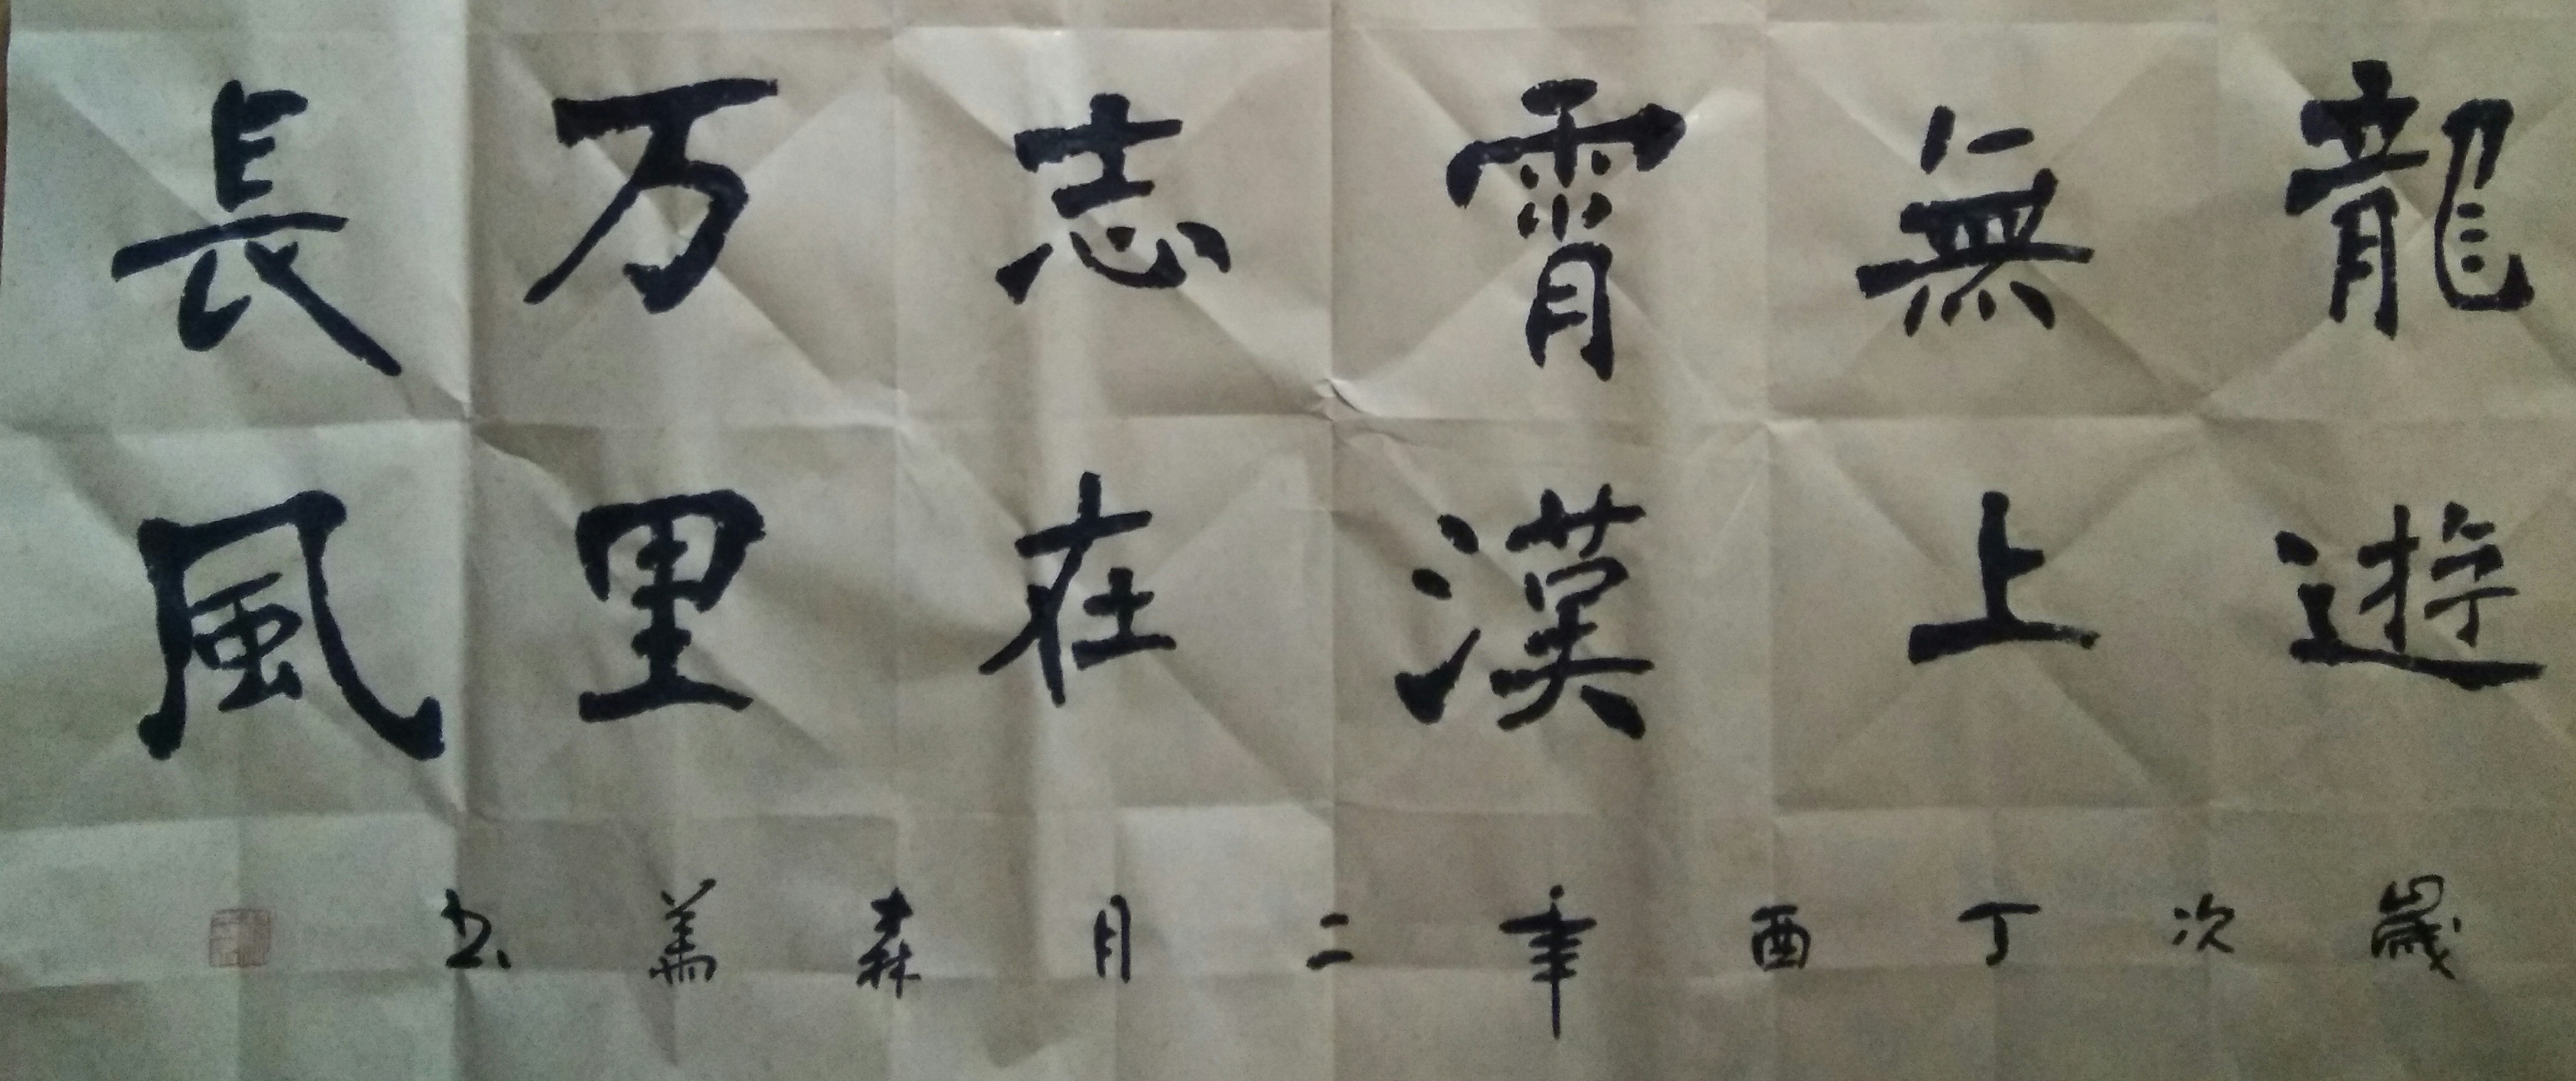 龍遊
無上
霄漢
志在
万里
長風
歲次丁酉年二月森书